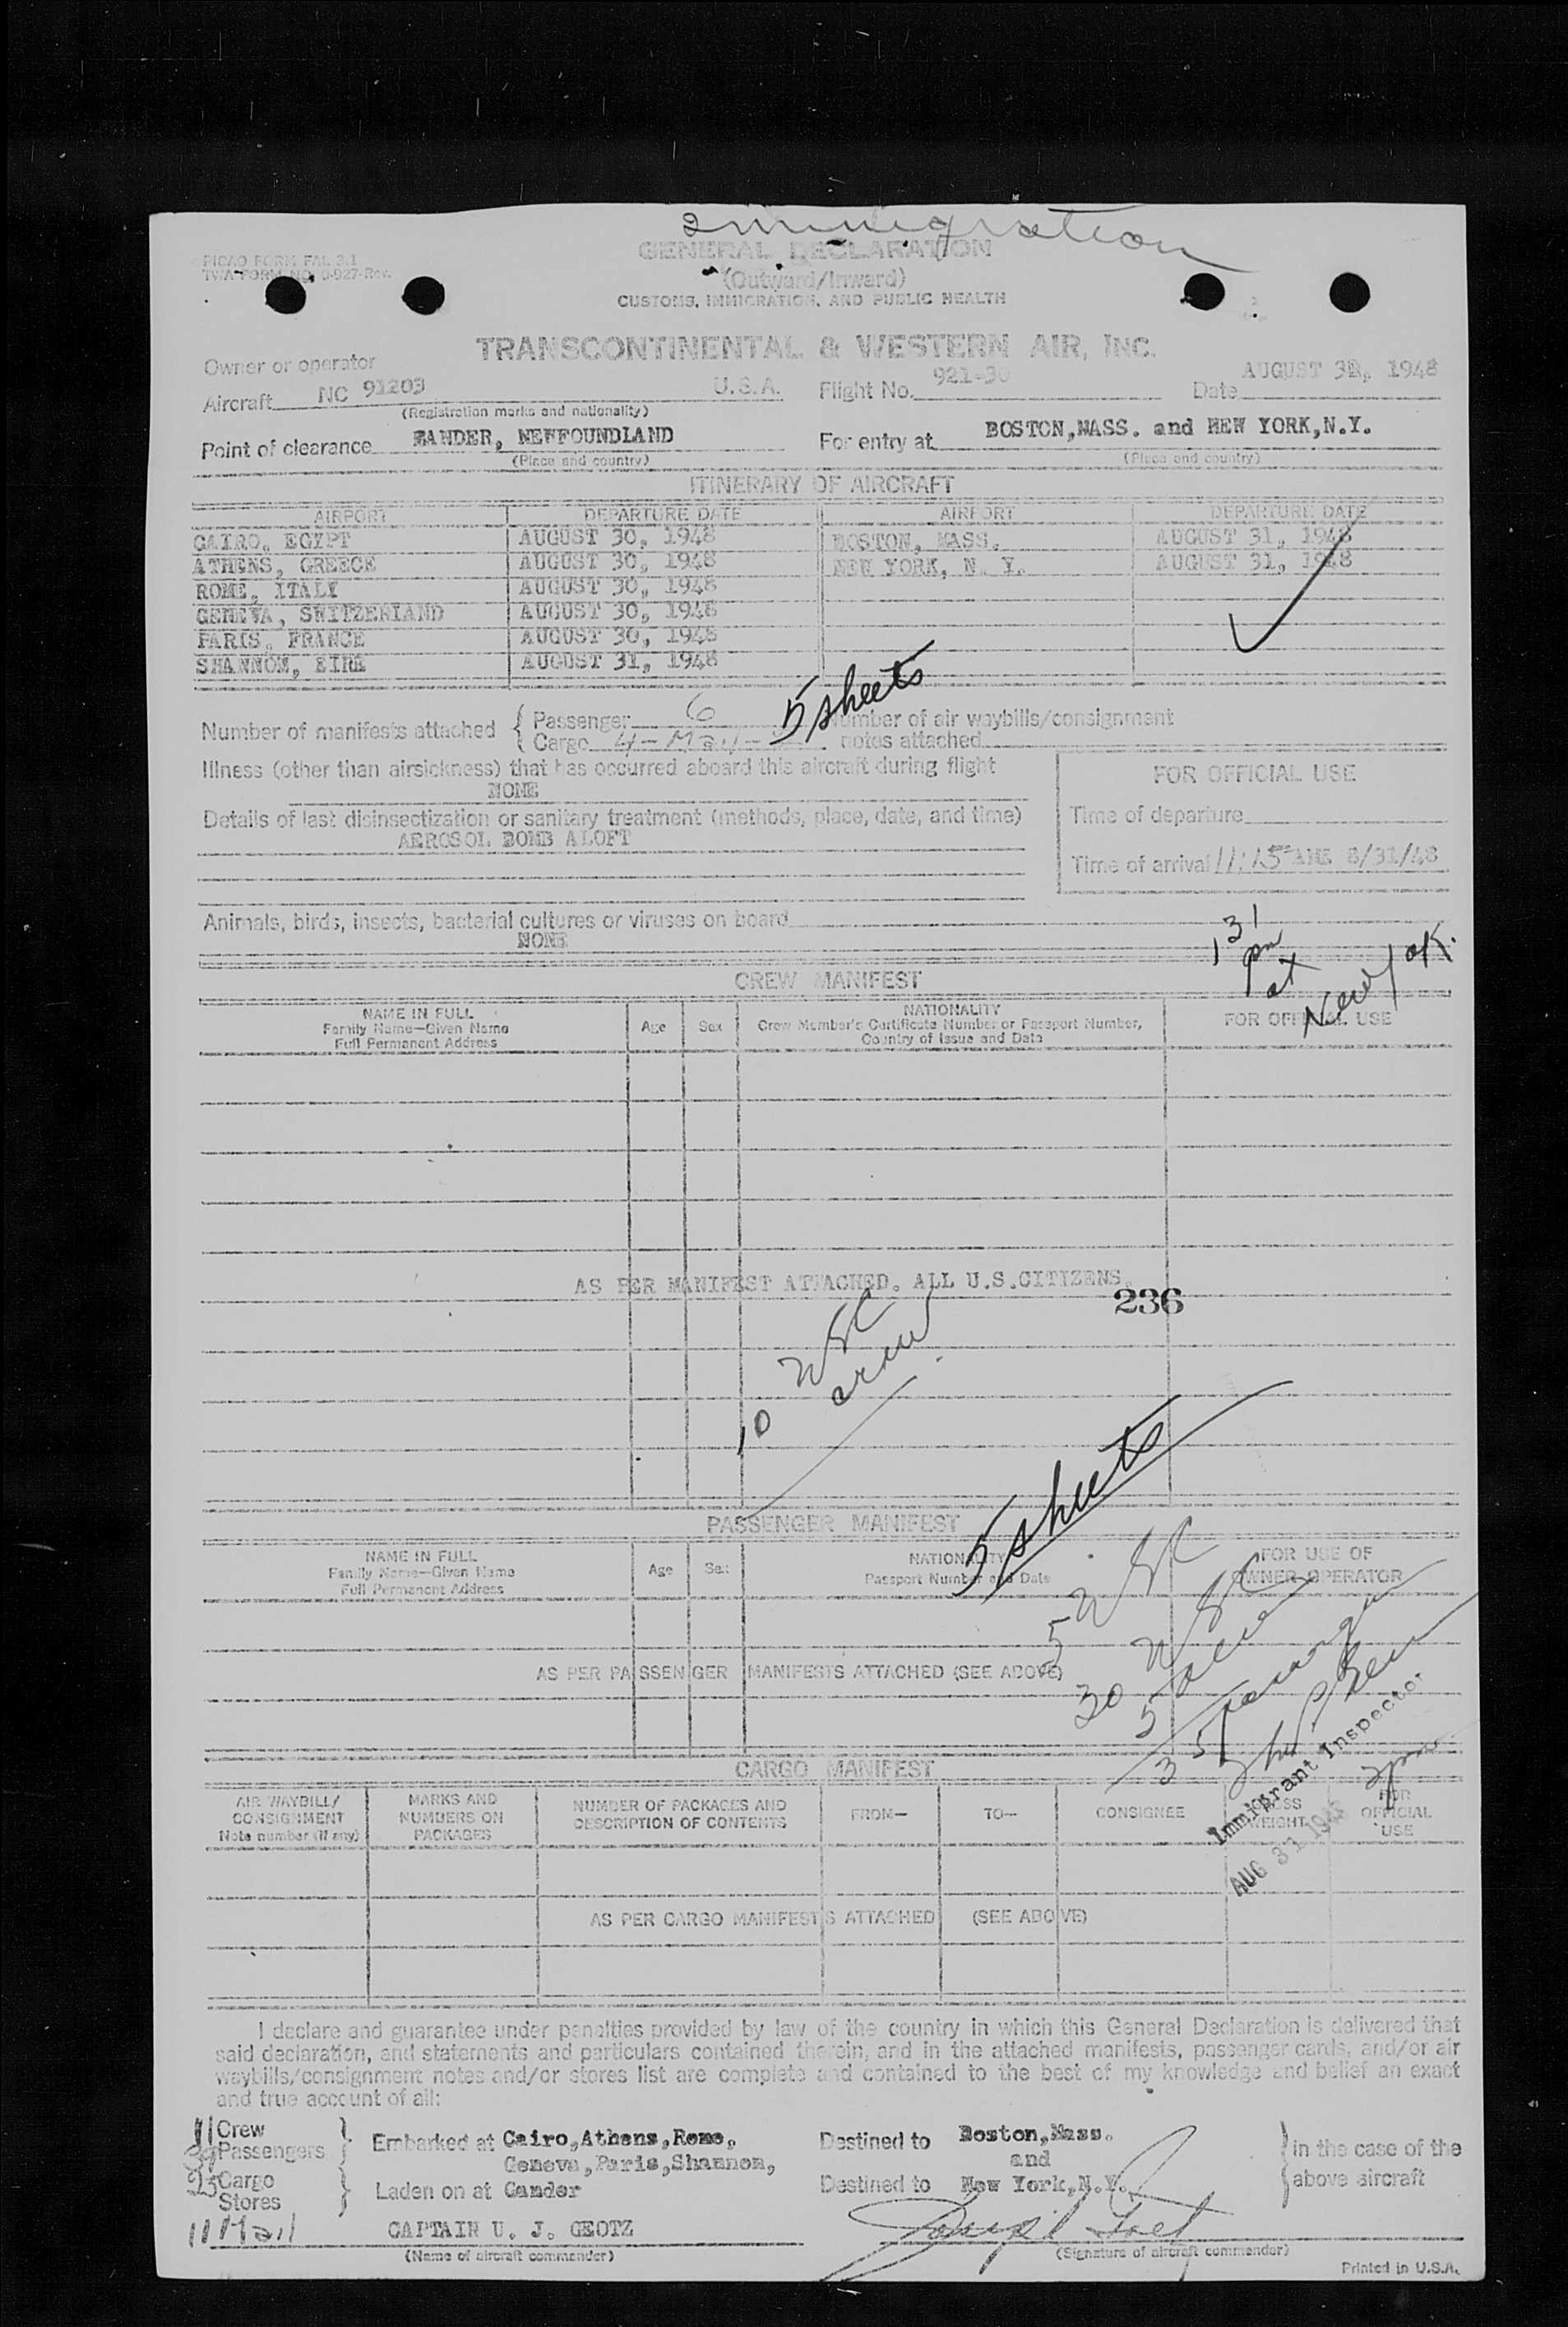 Immigration
PICAO FORM FAL 3.1
TWA FORM NO. 0-927-Rev.
GENERAL DECLARATION
(Outward/Inward)
CUSTOMS, IMMIGRATION, AND PUBLIC HEALTH
TRANSCONTINENTAL & WESTERN AIR, INC.
Owner or operator
Aircraft NC 91203 U.S.A. Flight No. 921-30 Date AUGUST 31, 1948
(Registration marks and nationality)
Point of clearance GANDER, NEWFOUNDLAND For entry at BOSTON,MASS. and NEW YORK,N.Y.
(Place and country) (Place and country)
ITINERARY OF AIRCRAFT
AIRPORT DEPARTURE DATE AIRPORT DEPARTURE DATE
CAIRO, EGYPT AUGUST 30, 1948 BOSTON, MASS. AUGUST 31, 1948
ATHENS, GREECE AUGUST 30, 1948 NEW YORK, N. Y. AUGUST 31, 1948
ROME, ITALY AUGUST 30, 1948
GENEVA, SWITZERLAND AUGUST 30, 1948
PARIS, FRANCE AUGUST 30, 1948
SHANNON, EIRE AUGUST 31, 1948
5 sheets
Number of manifests attached { Passenger 6 Number of air waybills/consignment
Cargo 4-Mail- notes attached
Illness (other than airsickness) that has occurred aboard this aircraft during flight
NONE
FOR OFFICIAL USE
Details of last disinsectization or sanitary treatment (methods, place, date, and time)
AEROSOL BOMB ALOFT
Time of departure
Time of arrival 11:15 AM 8/31/48
Animals, birds, insects, bacterial cultures or viruses on board
NONE
1 31 pm at New York
CREW MANIFEST
NAME IN FULL
Family Name—Given Name
Full Permanent Address
Age Sex
NATIONALITY
Crew Member's Certificate Number or Passport Number,
Country of Issue and Date
FOR OFFICIAL USE
AS PER MANIFEST ATTACHED. ALL U.S.CITIZENS.
236
10 USC crew
5 sheets
PASSENGER MANIFEST
NAME IN FULL
Family Name—Given Name
Full Permanent Address
Age Sex
NATIONALITY
Passport Number and Date
FOR USE OF
OWNER-OPERATOR
5 USC
AS PER PASSENGER MANIFESTS ATTACHED (SEE ABOVE)
30 USC
5
35
Immigrant Inspector
AUG 31 1948
2 pm
CARGO MANIFEST
AIR WAYBILL/
CONSIGNMENT
Note number (if any)
MARKS AND
NUMBERS ON
PACKAGES
NUMBER OF PACKAGES AND
DESCRIPTION OF CONTENTS
FROM— TO— CONSIGNEE
GROSS
WEIGHT
FOR
OFFICIAL
USE
AS PER CARGO MANIFESTS ATTACHED (SEE ABOVE)
I declare and guarantee under penalties provided by law of the country in which this General Declaration is delivered that
said declaration, and statements and particulars contained therein, and in the attached manifests, passenger cards, and/or air
waybills/consignment notes and/or stores list are complete and contained to the best of my knowledge and belief an exact
and true account of all:
11 Crew
Passengers } Embarked at Cairo,Athens,Rome, Destined to Boston,Mass.
Geneva,Paris,Shannon, and
25 Cargo
Stores } Laden on at Gander Destined to New York,N.Y. } in the case of the
above aircraft
11 Mail CAPTAIN U. J. GEOTZ
(Name of aircraft commander) (Signature of aircraft commander)
Printed in U.S.A.